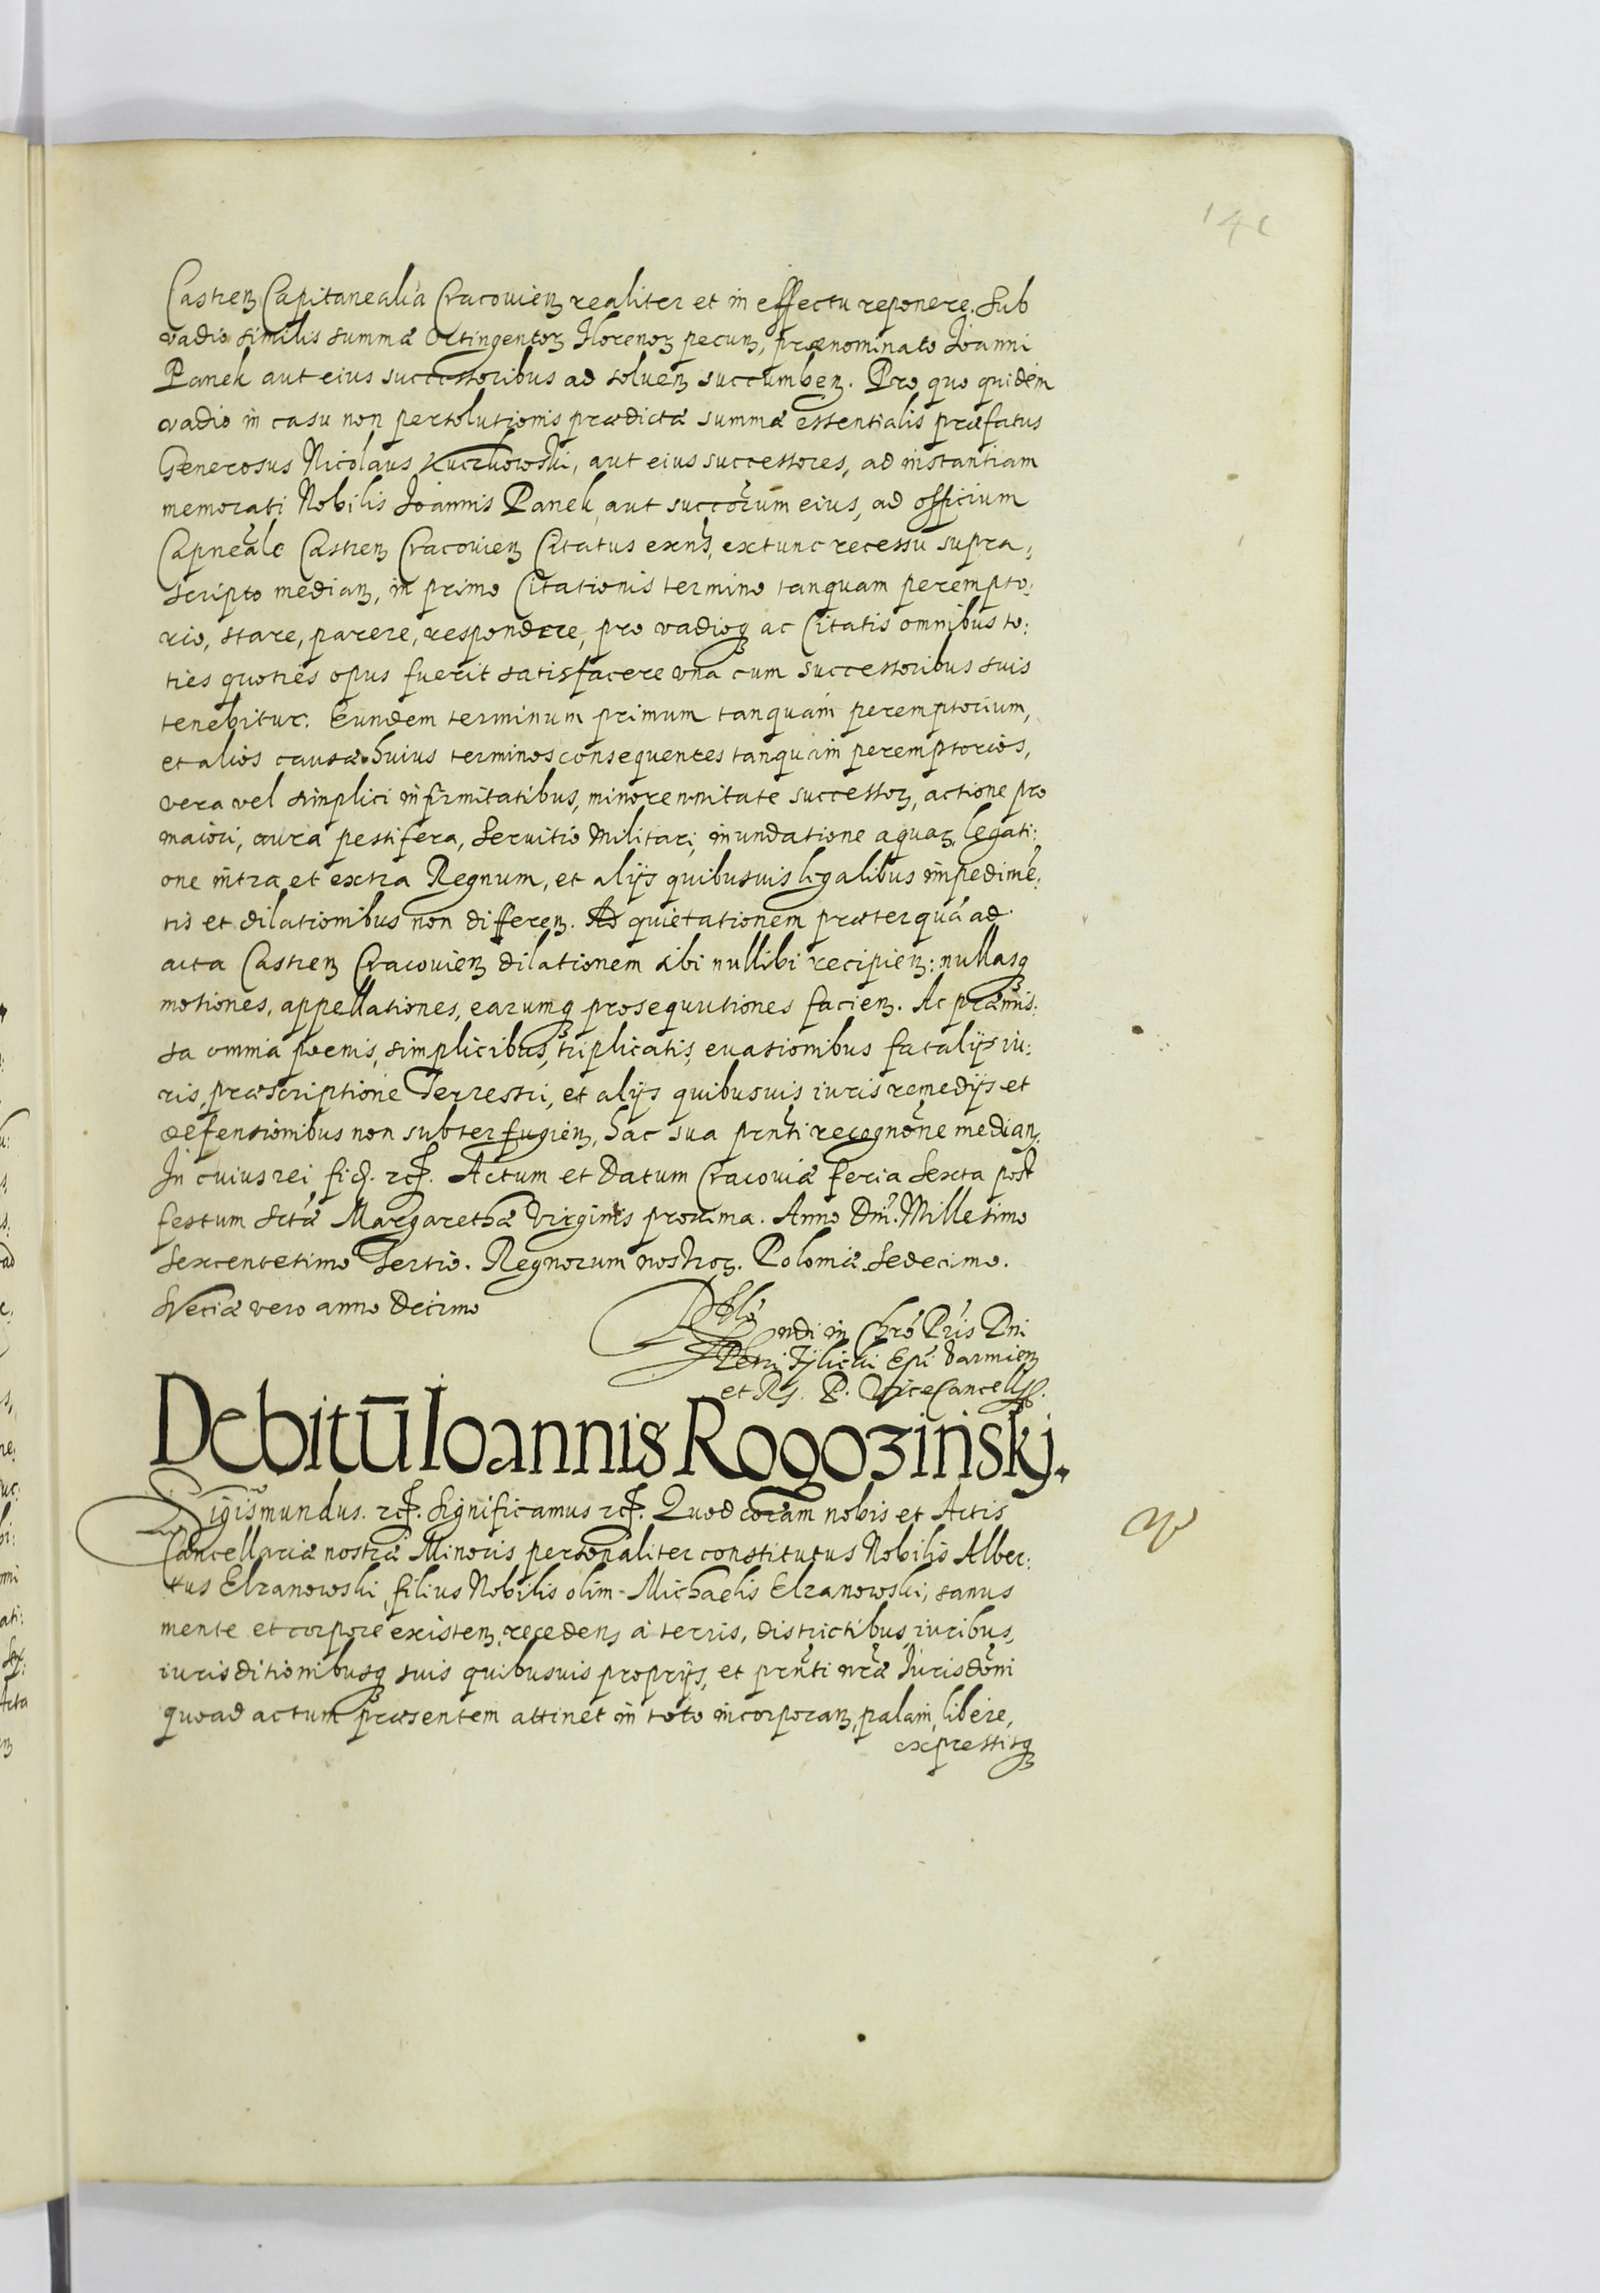 141
Castreñ Capitanealia Cracovieñ realiter et in effectu reponere. Sub
vadio similis summæ Octingentoꝝ Florenoꝝ pecuñ, prænominato Ioanni
Panek aut eius successoribus ad solueñ succumbeñ. Pro quo quidem
vadio in casu non persolutionis prædictæ summæ essentialis præfatus
Generosus Nicolaus Kuczkowski, aut eius successores, ad instantiam
memorati Nobilis Ioannis Panek, aut succorum eius, ad officium
Capneale Castreñ Cracovieñ Citatus exñs, extunc recessu supra,
scripto mediañ, in primo Citationis termino tanquam perempto:
rio, stare, parere, respondere, pro vadioq̃ ac Citatis omnibus to:
ties quoties opus fuerit satisfacere vna cum successoribus suis
tenebitur. Eundem terminum primum tanquam peremptorium,
et alios causæ huius terminos consequentes tanquam peremptorios,
vera vel simplici infirmitatibus, minorennitate successoꝝ, actione pro
maiori, aura pestifera, Servitio Militari, inundatione aquaꝝ, legati:
one intra et extra Regnum, et alijs quibusuis legalibus impedimẽ:
tis et dilationibus non differeñ. Ad quietationem præterquã ad
acta Castreñ Cracovieñ dilationem sibi nullibi recipieñ: nullasq̃
motiones, appellationes, earumq̃ prosequutiones facieñ. Ac præmis:
sa omnia pœnis, simplicibus, triplicatis, euasionibus fatalijs iu:
ris, præscriptione Terrestri, et alijs quibusuis iuris remedijs et
defensionibus non subterfugieñ, hac sua prñti recognõne mediañ.
In cuius rei fid. etc. Actum et Datum Cracoviæ feria Sexta post
festum Sctæ Margarethæ Virginis proxima. Anno Dñi. Millesimo
Sexcentesimo Tertio. Regnorum nostroꝝ. Poloniæ Sedecimo.
Sveciæ vero anno Decimo
Rñdi in Chrõ Pris Dni
Petri Tylicki Epi Varmieñ
et R. P. ViceCancellˢ.
Debitū Ioannis Rogozinskj.
Sigismundus. etc. Significamus etc. Quod coram nobis et Actis
Cancellariæ nostræ Minoris personaliter constitutus Nobilis Alber:
tus Elzanowski, filius Nobilis olim Michaelis Elzanowski, sanus
mente et corpore existeñ, recedens a terris, districtibus, iuribus,
iurisditionibusq̃ suis quibusuis proprijs, et prñti nr̃æ Iurisdõni
quoad actum præsentem attinet in toto incorporañ, palam, libere,
expressisq̃